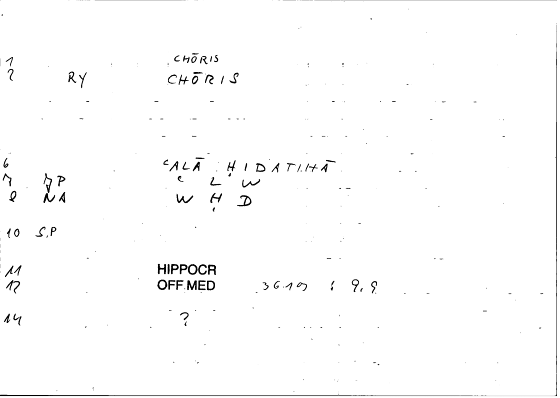 1 CHŌRIS
2 RY CHŌRIS
6 ʿALĀ ḤIDATIHĀ
7 ʿ L W
8 NA W Ḥ D
10 S,P
11 HIPPOCR
12 OFF.MED 36.19 : 9,9
14 ?